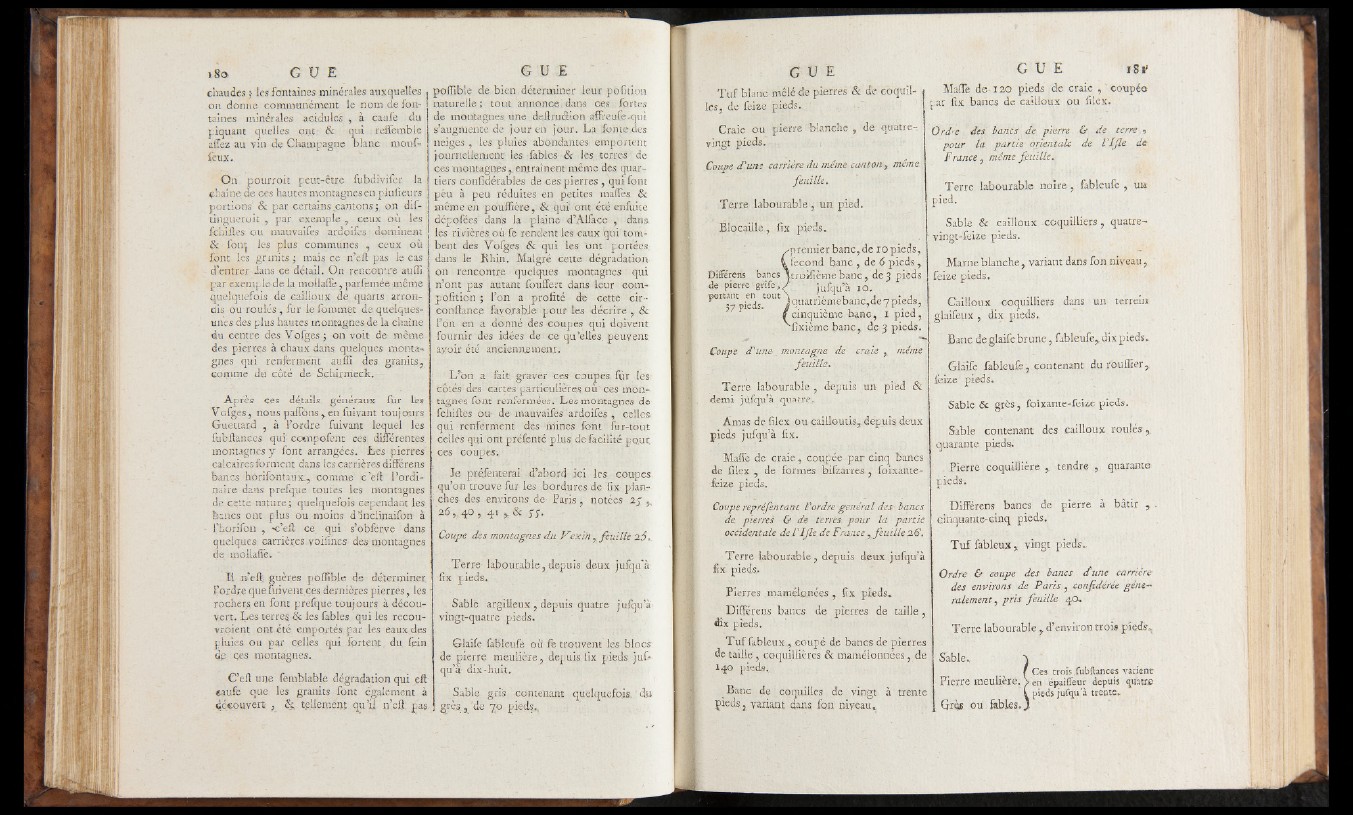 180 G U E
chaudes ; les fontaines minérales auxquelles
on donne communément le nom de fon-
taines minérales acidules , à cauſe du
piquant quelles ont & qui reſſemble
aſſez au vin de Champagne blanc mouſ-
ſeux.
On pourroit peut-être ſubdiviſer la
chaîne de ces hautes montagnes en pluſieurs
portions & par certains cantons ; on diſ-
tingueroit , par exemple , ceux où les
ſchiſtes ou mauvaiſes ardoiſes dominent
& ſont les plus communes , ceux où
ſont les granits ; mais ce n'eſt pas le cas
d'entrer dans ce détail. On rencontre auſſi
par exemple de la mollaſſe , parſemée même
quelquefois de cailloux de quarts arron-
dis ou roulés , ſur le ſommet de quelques-
unes des plus hautes montagnes de la chaîne
du centre des Voſges ; on voit de même
des pierres à chaux dans quelques monta-
gnes qui renferment auſſi des granits,
comme du côté de Schirmeck.
Après ces détails généraux ſur les
Voſges, nous paſſons, en ſuivant toujours
Guettard , à l'ordre ſuivant lequel les
ſubſtances qui compoſent ces différentes
montagnes y ſont arrangées. Les pierres
calcaires forment dans les carrières différens
bancs horiſontaux, comme c'eſt l'ordi-
naire dans preſque toutes les montagnes
de cette nature ; quelquefois cependant les
bancs ont plus ou moins d'inclinaiſon à
l'horiſon , c'eſt ce qui s'obſerve dans
quelques carrières voiſines des montagnes
de mollaſſe.
Il n'eſt guères poſſible de déterminer
l'ordre que ſuivent ces dernières pierres, les
rochers en ſont preſque toujours à décou-
vert. Les terres & les ſables qui les recou-
vroient ont été emportés par les eaux des
pluies ou par celles qui ſortent du ſein
de ces montagnes.
C'eſt une ſemblable dégradation qui eſt
cauſe que les granits ſont également à
découvert , & tellement qu'il n'eſt pas
G U E
poſſible de bien déterminer leur poſition
naturelle ; tout annonce dans ces fortes
de montagnes une deſtruction affreuſe qui
s'augmente de jour en jour. La fonte des
neiges , les pluies abondantes emportent
journellement les ſables & les terres de
ces montagnes, entraînent même des quar-
tiers conſidérables de ces pierres , qui ſont
peu à peu réduites en petites maſſes &
même en pouſſière, & qui ont été enſuite
dépoſées dans la plaine d'Alſace , dans
les rivières où ſe rendent les eaux qui tom-
bent des Voſges & qui les ont portées
dans le Rhin. Malgré cette dégradation
on rencontre quelques montagnes qui
n'ont pas autant ſouffert dans leur com-
poſition ; l'on a profité de cette cir-
conſtance favorable pour les décrire , &
l'on en a donné des coupes qui doivent
fournir des idées de ce qu'elles peuvent
avoir été anciennement.
L'on a fait graver ces coupes ſur les
côtés des cartes particulières où ces mon-
tagnes ſont renfermées. Les montagnes de
ſchiſtes ou de mauvaiſes ardoiſes , celles
qui renferment des mines ſont ſur-tout
celles qui ont préſenté plus de facilité pour
ces coupes.
Je préſenterai d'abord ici les coupes
qu'on trouve ſur les bordures de ſix plan-
ches des environs de Paris , notées 25 ,
26 , 40 , 41 , & 55.
Coupe des montagnes du Vexin , feuille 26.
Terre labourable, depuis deux juſqu'à
ſix pieds.
Sable argilleux , depuis quatre juſqu'à
vingt-quatre pieds.
Glaiſe ſableuſe où ſe trouvent les blocs
de pierre meulière, depuis ſix pieds juſ-
qu'à dix-huit.
Sable gris contenant quelquefois du
grès , de 70 pieds.
G U E
Tuf blanc mêlé de pierres & de coquil-
les, de ſeize pieds.
Craie ou pierre blanche , de quatre-
vingt pieds.
Coupe d'une carrière du même canton, même
feuille.
Terre labourable , un pied.
Blocaille, ſix pieds.
Différens bancs
de pierre griſe,
portant en tout
37 pieds.
premier banc, de 10 pieds,
ſecond banc , de 6 pieds ,
troiſième banc, de 3 pieds
juſqu'à 10.
quatrième banc, de 7 pieds,
cinquième banc, 1 pied,
ſixième banc, de 3 pieds.
Coupe d'une montagne de craie , même
feuille.
Terre labourable , depuis un pied &
demi juſqu'à quatre.
Amas de ſilex ou cailloutis, depuis deux
pieds juſqu'à ſix.
Maſſe de craie, coupée par cinq bancs
de ſilex , de formes biſarres , ſoixante-
ſeize pieds.
Coupe repréſentant l'ordre général des bancs
de pierres & de terres pour la partie
occidentale de l'Iſle de France , feuille 26.
Terre labourable , depuis deux juſqu'à
ſix pieds.
Pierres mamélonées , ſix pieds.
Différens bancs de pierres de taille ,
dix pieds.
Tuf ſableux , coupé de bancs de pierres
de taille , coquillières & mamélonnées , de
140 pieds.
Banc de coquilles de vingt à trente
pieds , variant dans ſon niveau.
G U E 181
Maſſe de 120 pieds de craie , coupée
par ſix bancs de cailloux ou ſilex.
Ordre des bancs de pierre & de terre ,
pour la partie orientale de l'Iſle de
France , même feuille.
Terre labourable noire , ſableuſe , un
pied.
Sable & cailloux coquilliers , quatre-
vingt-ſeize pieds.
Marne blanche, variant dans ſon niveau,
ſeize pieds.
Cailloux coquilliers dans un terrein
glaiſeux , dix pieds.
Banc de glaiſe brune, ſableuſe, dix pieds.
Glaiſe ſableuſe, contenant du rouſſier,
ſeize pieds.
Sable & grès, ſoixante-ſeize pieds.
Sable contenant des cailloux roulés ,
quarante pieds.
Pierre coquillière , tendre , quarante
pieds.
Différens bancs de pierre à bâtir ,
cinquante-cinq pieds.
Tuf ſableux , vingt pieds.
Ordre & coupe des bancs d'une carrière
des environs de Paris , conſidérée géné-
ralement, pris feuille 40.
Terre labourable, d'environ trois pieds.
Sable.
Pierre meulière.
Grès ou ſables.
Ces trois ſubſtances varient
en épaiſſeur depuis quatre
pieds juſqu'à trente.